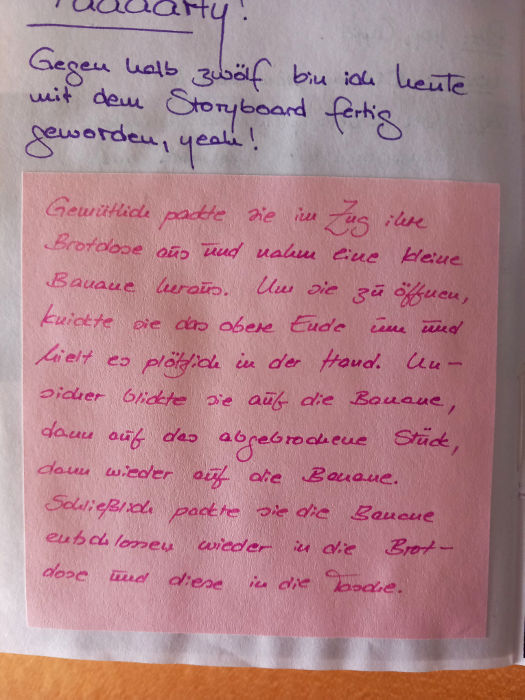 Paaaarty!
Gegen halb zwölf bin ich heute
mit dem Storyboard fertig
geworden, yeah!
Gemütlich packte sie im Zug ihre
Brotdose aus und nahm eine kleine
Banane heraus. Um sie zu öffnen,
knickte sie das obere Ende um und
hielt es plötzlich in der Hand. Un-
sicher blickte sie auf die Banane,
dann auf das abgebrochene Stück,
dann wieder auf die Banane.
Schließlich packte sie die Banane
entschlossen wieder in die Brot-
dose und diese in die Tasche.